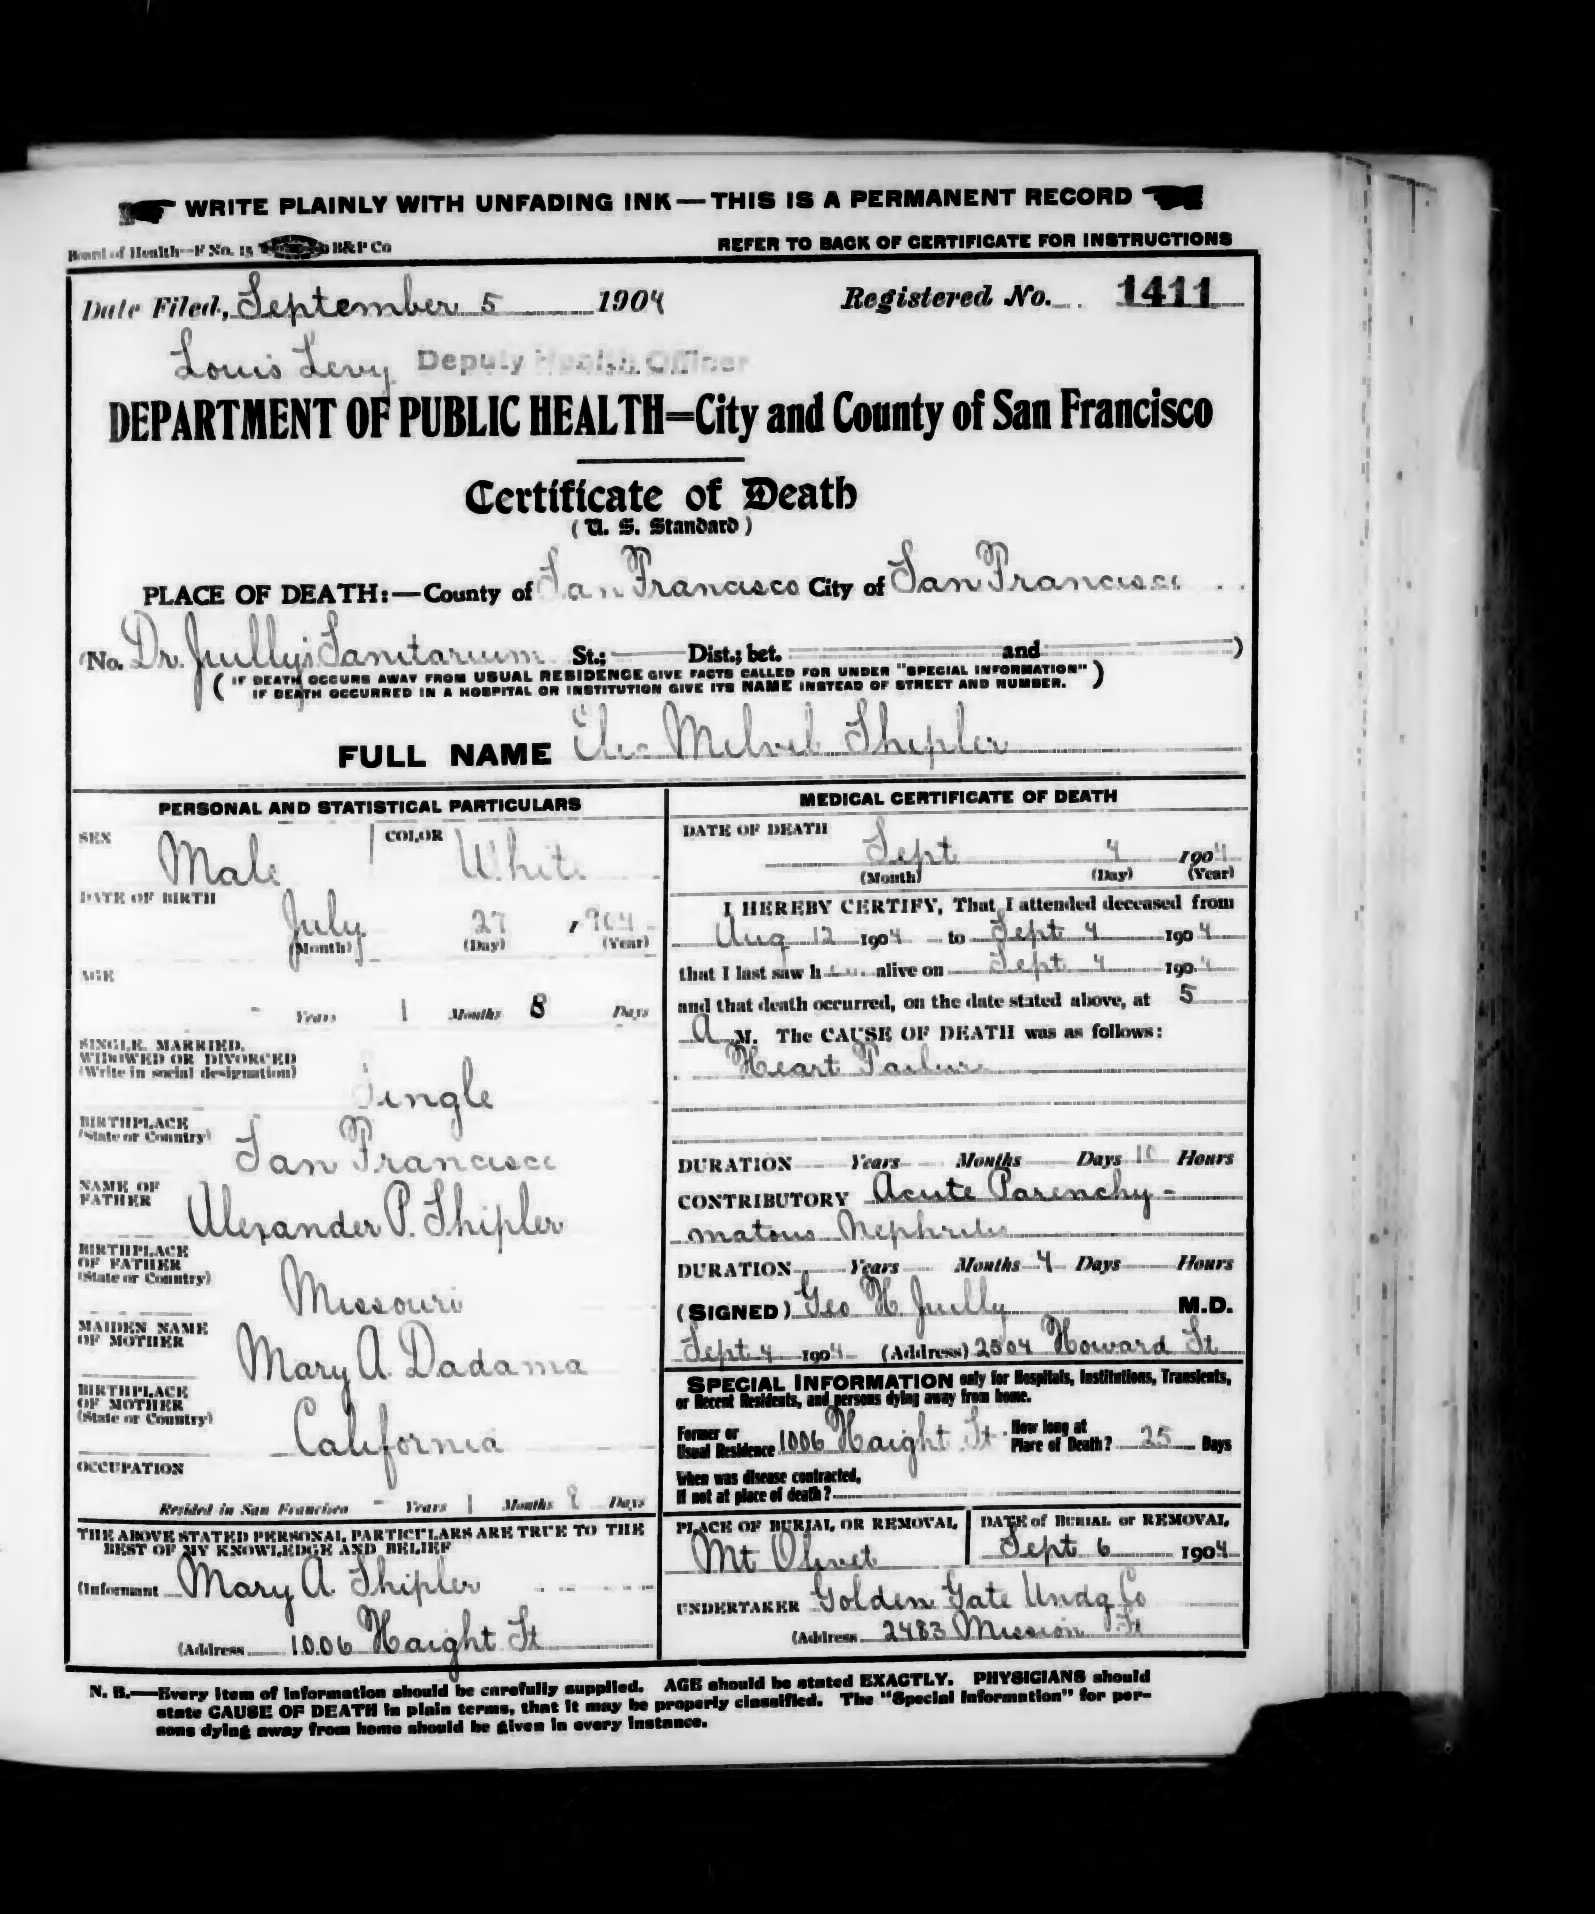 WRITE PLAINLY WITH UNFADING INK — THIS IS A PERMANENT RECORD
Board of Health—F No. 15 B&P Co
REFER TO BACK OF CERTIFICATE FOR INSTRUCTIONS
Date Filed, September 5 1904 Registered No. 1411
Louis Levy Deputy Health Officer
DEPARTMENT OF PUBLIC HEALTH=City and County of San Francisco
Certificate of Death
( U. S. Standard )
PLACE OF DEATH:—County of San Francisco City of San Francisco
(No. Dr. Juilly's Sanitarium St.; Dist.; bet. and )
( IF DEATH OCCURS AWAY FROM USUAL RESIDENCE GIVE FACTS CALLED FOR UNDER "SPECIAL INFORMATION" )
IF DEATH OCCURRED IN A HOSPITAL OR INSTITUTION GIVE ITS NAME INSTEAD OF STREET AND NUMBER.
FULL NAME Melvil Shipler
PERSONAL AND STATISTICAL PARTICULARS
SEX Male COLOR White
DATE OF BIRTH
July 27 , 904
(Month) (Day) (Year)
AGE
- Years 1 Months 8 Days
SINGLE, MARRIED,
WIDOWED OR DIVORCED
(Write in social designation)
Single
BIRTHPLACE
(State or Country)
San Francisco
NAME OF
FATHER
Alexander P. Shipler
BIRTHPLACE
OF FATHER
(State or Country)
Missouri
MAIDEN NAME
OF MOTHER
Mary A. Dadama
BIRTHPLACE
OF MOTHER
(State or Country)
California
OCCUPATION
Resided in San Francisco - Years 1 Months 8 Days
THE ABOVE STATED PERSONAL PARTICULARS ARE TRUE TO THE
BEST OF MY KNOWLEDGE AND BELIEF
(Informant Mary A. Shipler
(Address 1006 Haight St
MEDICAL CERTIFICATE OF DEATH
DATE OF DEATH
Sept 4 1904
(Month) (Day) (Year)
I HEREBY CERTIFY, That I attended deceased from
Aug 12 1904 to Sept 4 1904
that I last saw h alive on Sept 4 1904
and that death occurred, on the date stated above, at 5
A M. The CAUSE OF DEATH was as follows:
Heart Failure
DURATION Years Months Days 10 Hours
CONTRIBUTORY Acute Parenchy-
matous Nephritis
DURATION Years Months 4 Days Hours
(SIGNED) Geo H Juilly M.D.
Sept 4 1904 (Address) 2504 Howard St
SPECIAL INFORMATION only for Hospitals, Institutions, Transients,
or Recent Residents, and persons dying away from home.
Former or
Usual Residence 1006 Haight St. How long at
Place of Death? 25 Days
When was disease contracted,
If not at place of death?
PLACE OF BURIAL OR REMOVAL
Mt Olivet
DATE of BURIAL or REMOVAL
Sept 6 1904
UNDERTAKER Golden Gate Undg Co
(Address 2483 Mission St
N. B.—Every item of information should be carefully supplied. AGE should be stated EXACTLY. PHYSICIANS should
state CAUSE OF DEATH in plain terms, that it may be properly classified. The "Special Information" for per-
sons dying away from home should be given in every instance.